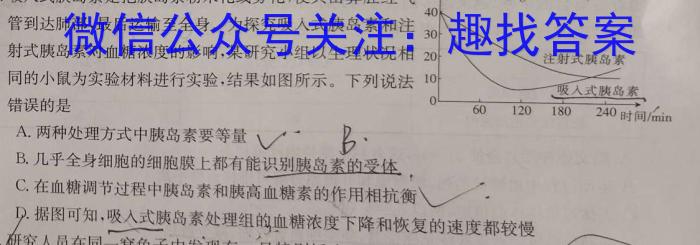 微信公众号关注：趣找答案
管到达肺
射式胰岛素对血糖浓度的影响，某研究小组以生理状况相
同的小鼠为实验材料进行实验，结果如图所示。下列说法
错误的是
A. 两种处理方式中胰岛素要等量
B.
B. 几乎全身细胞的细胞膜上都有能识别胰岛素的受体
C. 在血糖调节过程中胰岛素和胰高血糖素的作用相抗衡
D. 据图可知，吸入式胰岛素处理组的血糖浓度下降和恢复的速度都较慢
40
30
20
10
0
注射式胰岛素
吸入式胰岛素
60 120 180 240 时间/min